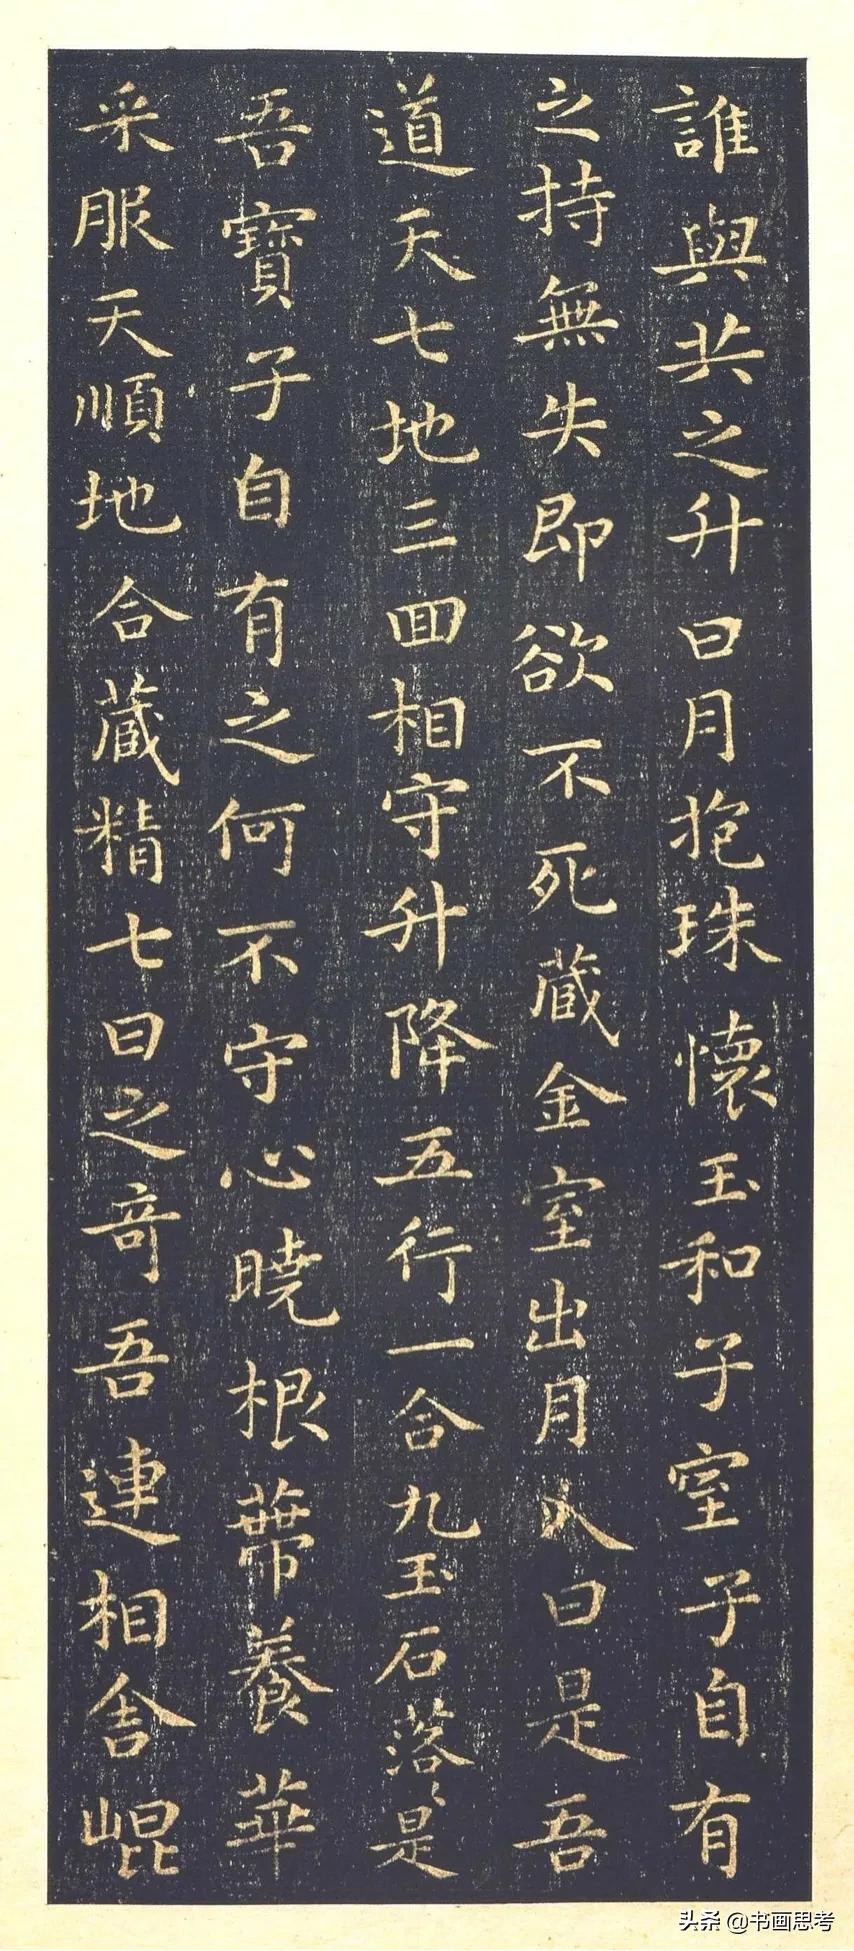 誰與共之升日月抱珠懷玉和子室子自有
之持無失即欲不死藏金室出月入日是吾
道天七地三回相守升降五行一合九玉石落〻是
吾寶子自有之何不守心曉根蔕養華
采服天順地合藏精七日之奇吾連相舍崐
头条 @书画思考